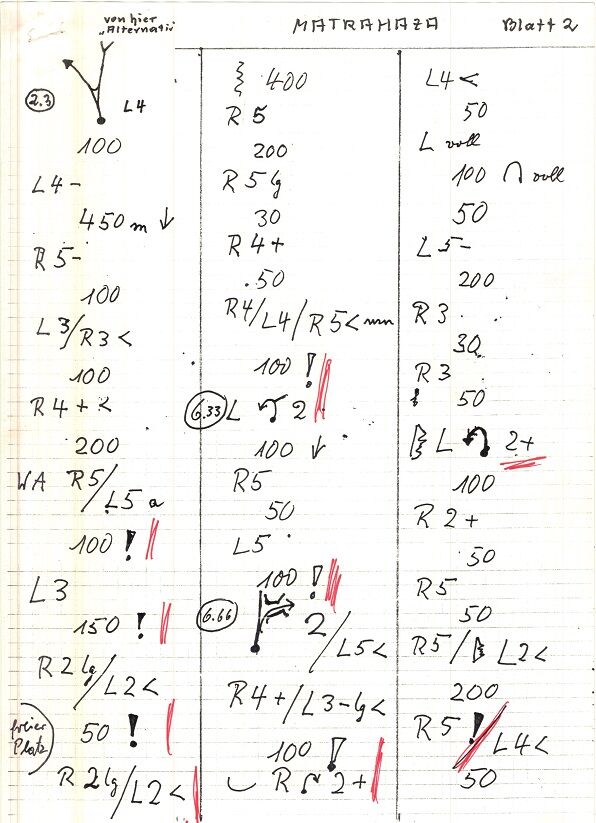 von hier
"Alternativ
MATRAHAZA
Blatt 2
2.3
L4
100
L4-
450 m ↓
R5-
100
L3/R3<
100
R4+<
200
WA R5/L5 a
100 !
L3
150 !
R2 lg/L2<
freier
Platz
50 !
R2lg/L2<
400
R5
200
R5 lg
30
R4+
50
R4/L4/R5<
100 !
6.33 L 2
100 ↓
R5
50
L5
100 !
6.66
2/L5<
R4+/L3-lg<
100 !
R 2+
L4<
50
L voll
100 voll
50
L5-
200
R3
30
R3
50
L 2+
100
R2+
50
R5
50
R5/ L2<
200
R5 ! L4<
50